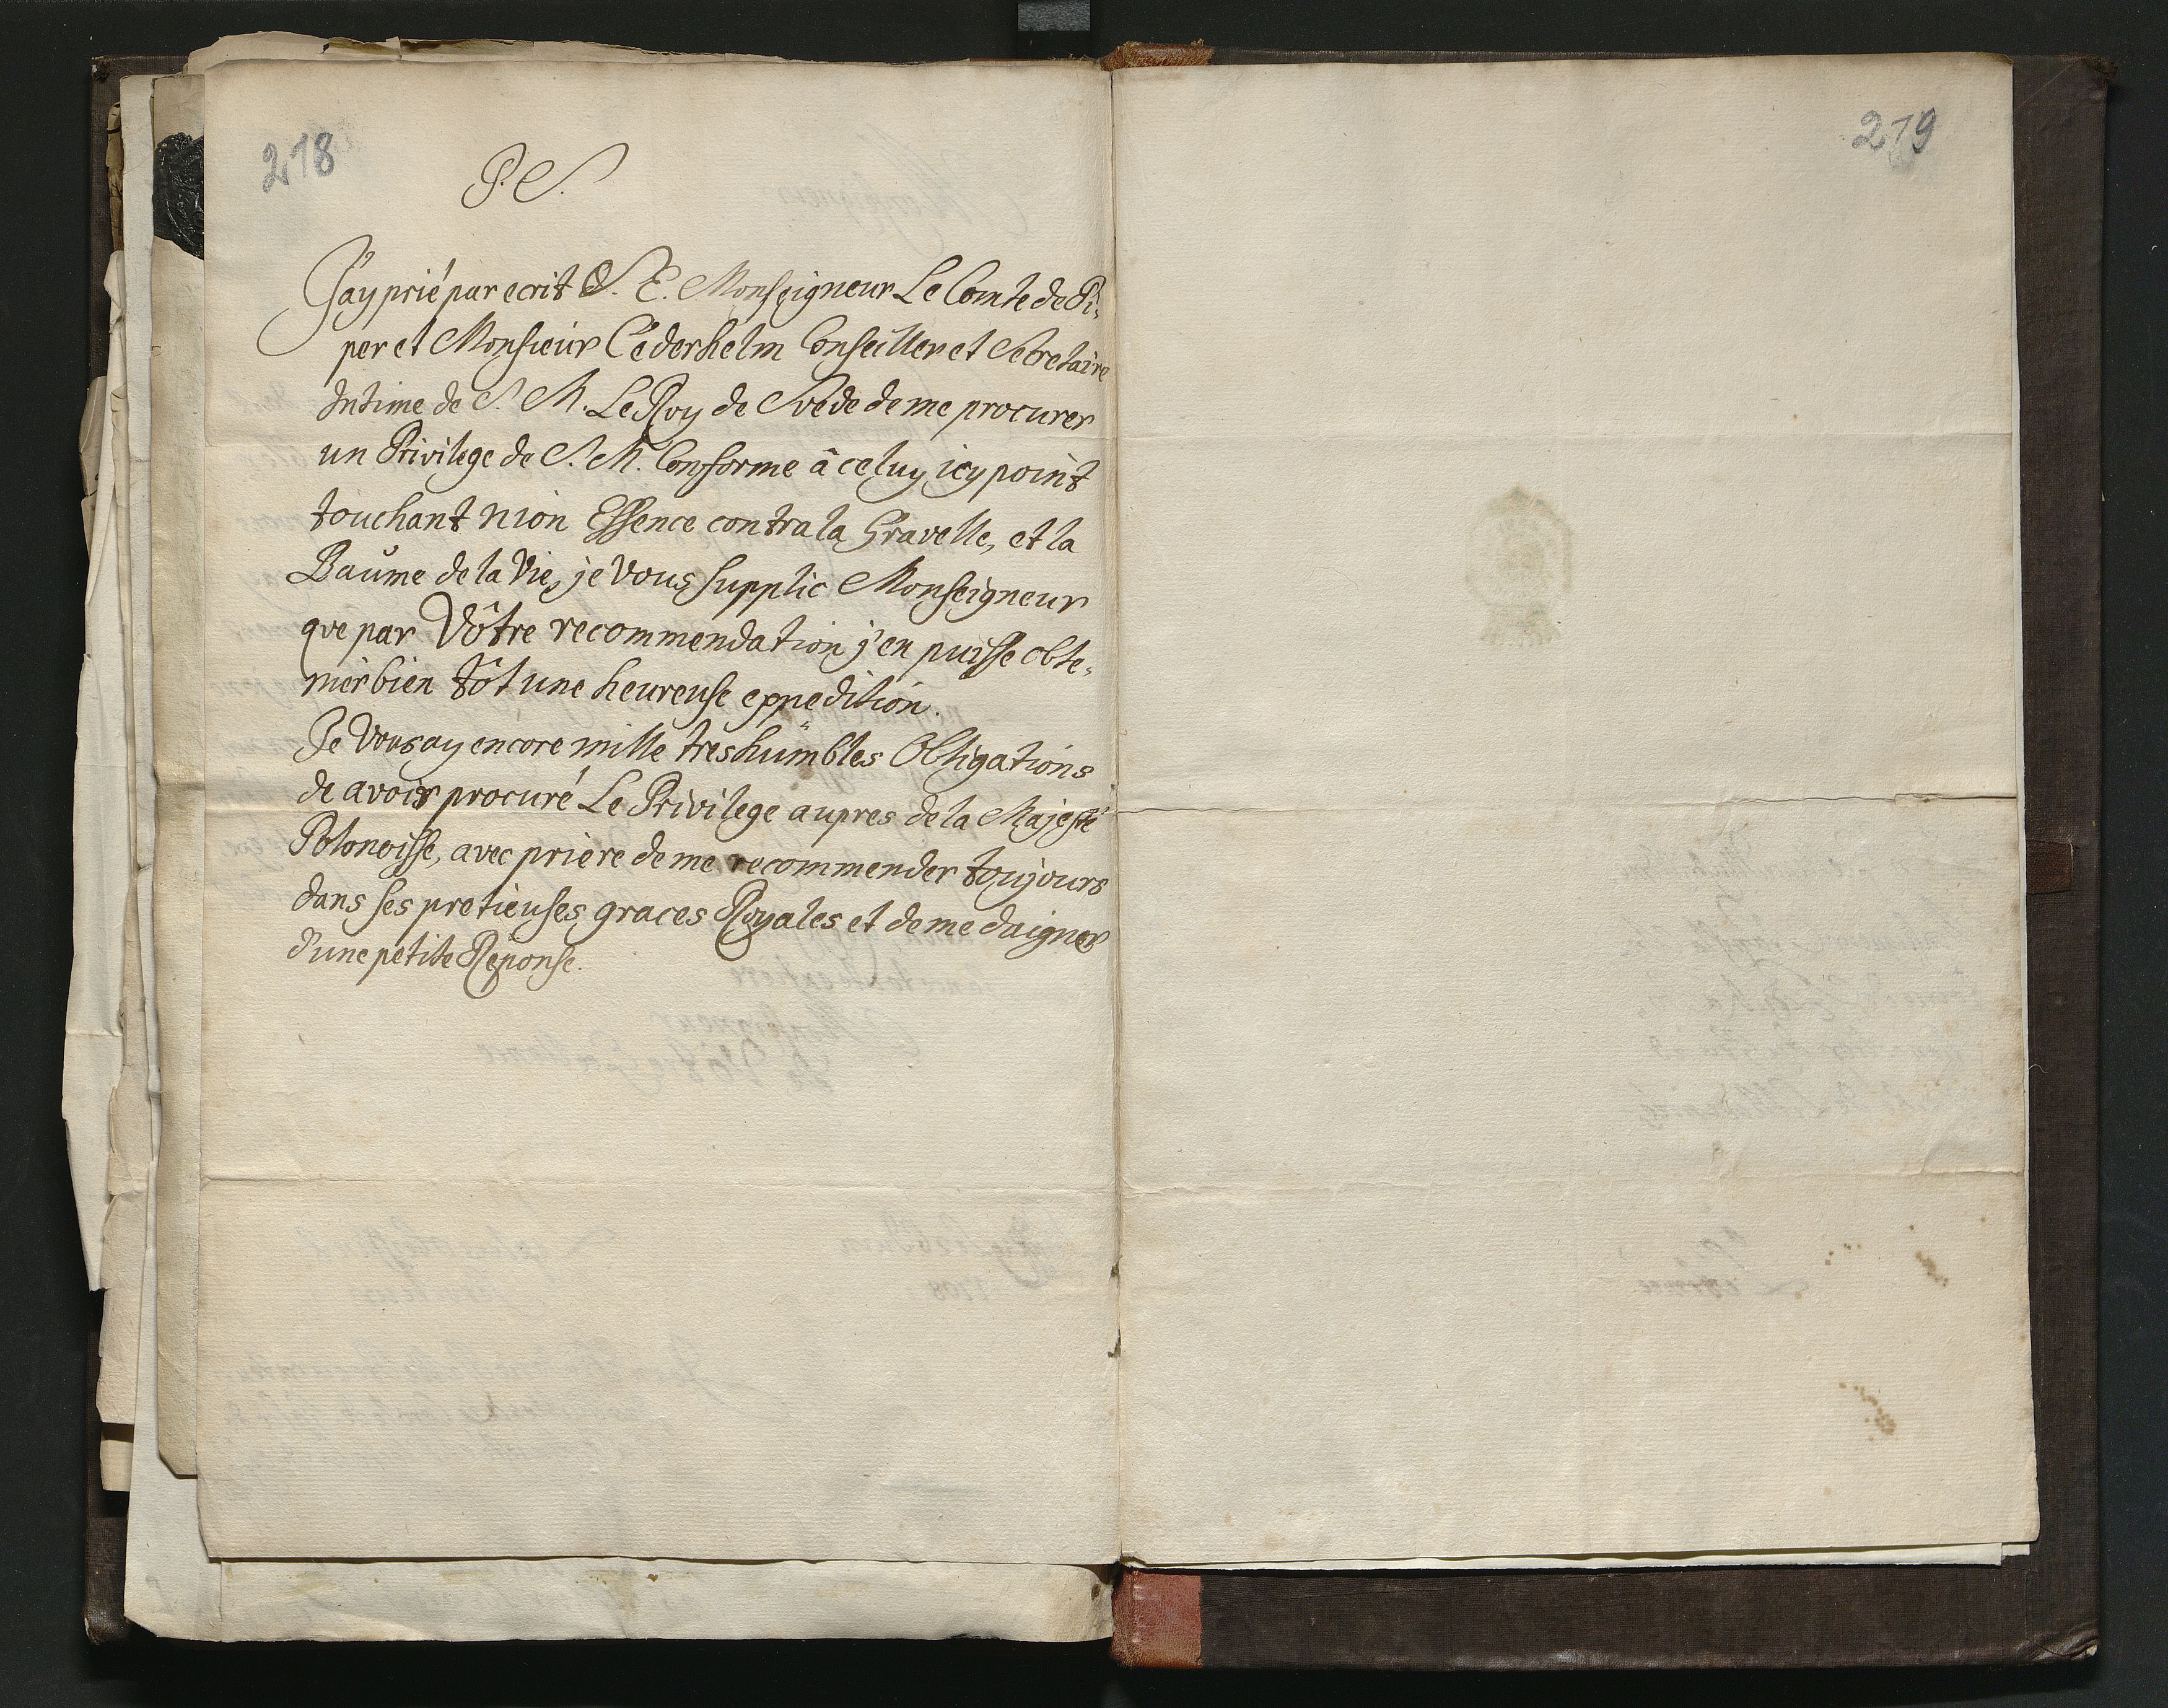 218
P. S.
J'ay prié par ecrit S. E. Monseigneur Le Comte de Pi-
per et Monsieur Cederhelm Conseiller et Secretaire
Intime de S. M. Le Roy de Svede de me procurer
un Privilege de S. M. Conforme â celuy icy point
touchant mon Essence contra la Gravelle, et la
Baume de la Vie, je Vous supplie Monseigneur
que par Vôtre recommendation j'en puisse obte-
nier bien tôt une heureuse expedition.
Je Vous ay encore mille tres humbles Obligations
de avoir procuré Le Privilege aupres de la Majesté
Polonoisse, avec priere de me recommender toujours
dans ses pretieuses graces Royales et de me daigner
d'une petite Reponse.
219